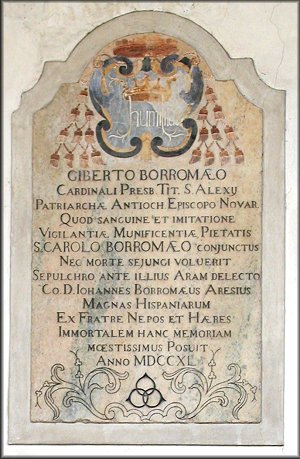 Humilitas
GIBERTO BORROMÆO
CARDINALI PRESB. TIT. S. ALEXIJ
PATRIARCHÆ ANTIOCH EPISCOPO NOVAR.
QUOD SANGUINE ET IMITATIONE
VIGILANTIÆ MUNIFICENTIÆ PIETATIS
S. CAROLO BORROMÆO CONJUNCTUS
NEC MORTE SEJUNGI VOLUERIT
SEPULCHRO ANTE ILLIUS ARAM DELECTO
CO. D. IOHANNES BORROMÆUS ARESIUS
MAGNAS HISPANIARUM
EX FRATRE NEPOS ET HÆRES
IMMORTALEM HANC MEMORIAM
MŒSTISSIMUS POSUIT
ANNO MDCCXL